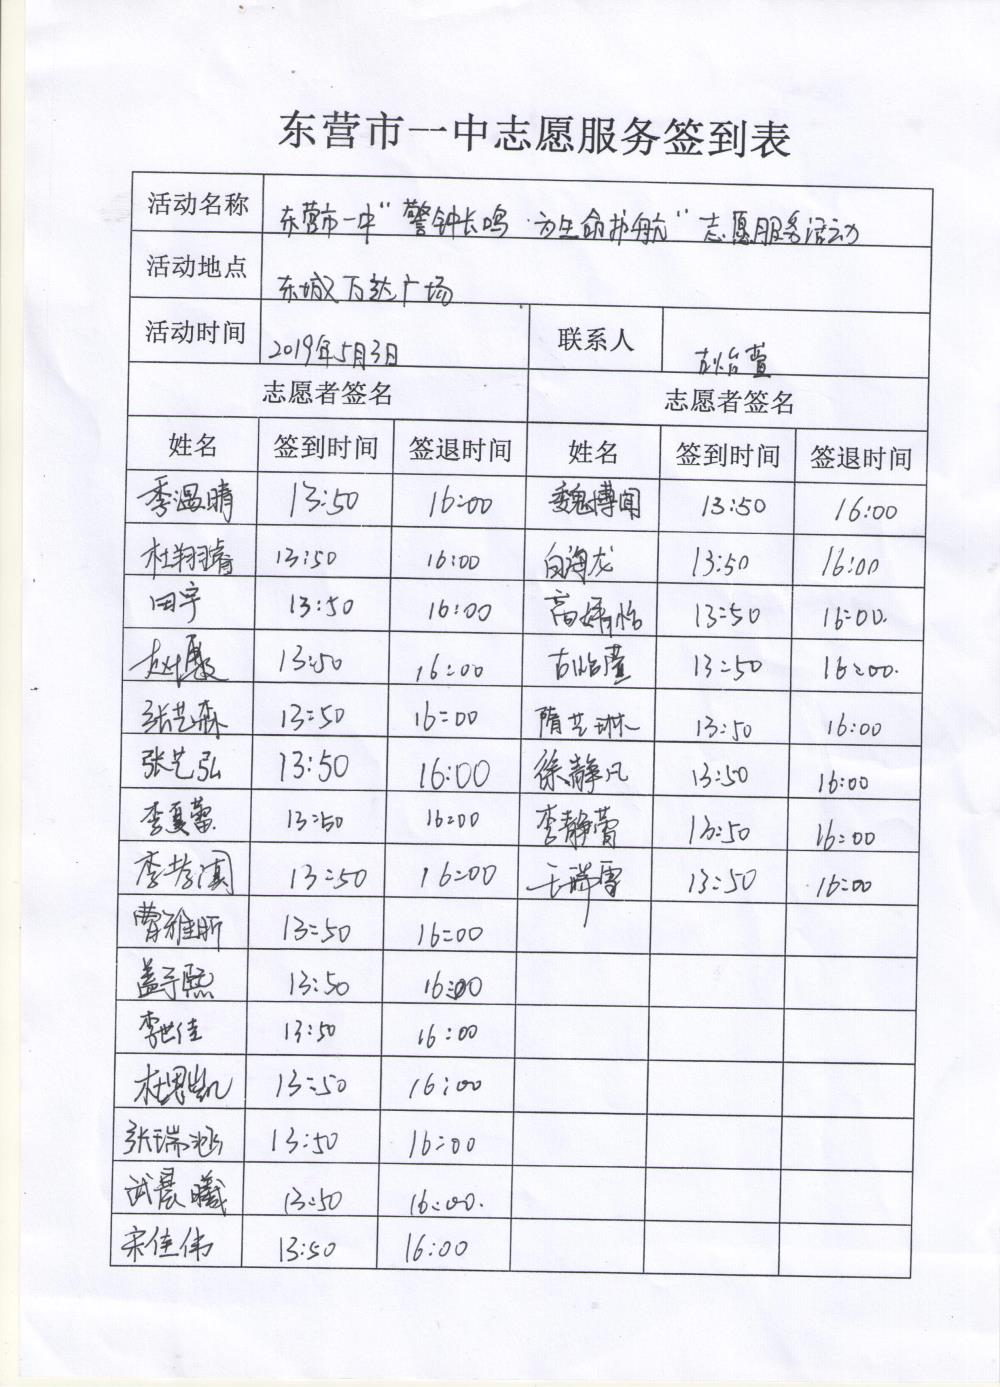 东营市一中志愿服务签到表
活动名称 东营市一中“警钟长鸣·为生命护航”志愿服务活动
活动地点 东城万达广场
活动时间 2019年5月3日 联系人 古怡萱
志愿者签名 志愿者签名
姓名 签到时间 签退时间 姓名 签到时间 签退时间
季温晴 13:50 16:00 魏博闻 13:50 16:00
杜翔睿 13:50 16:00 白海龙 13:50 16:00
田宇 13:50 16:00 高婷怡 13:50 16:00.
13:50 16:00 古怡萱 13:50 16:00.
张艺森 13:50 16:00 隋艺琳 13:50 16:00
张艺弘 13:50 16:00 徐静凡 13:50 16:00
李夏蕾 13:50 16:00 李静萱 13:50 16:00
李 13:50 16:00 王祥雪 13:50 16:00
曹雅昕 13:50 16:00
盖子熙 13:50 16:00
李世佳 13:50 16:00
杜凯 13:50 16:00
张瑞涵 13:50 16:00
武晨曦 13:50 16:00.
宋佳伟 13:50 16:00